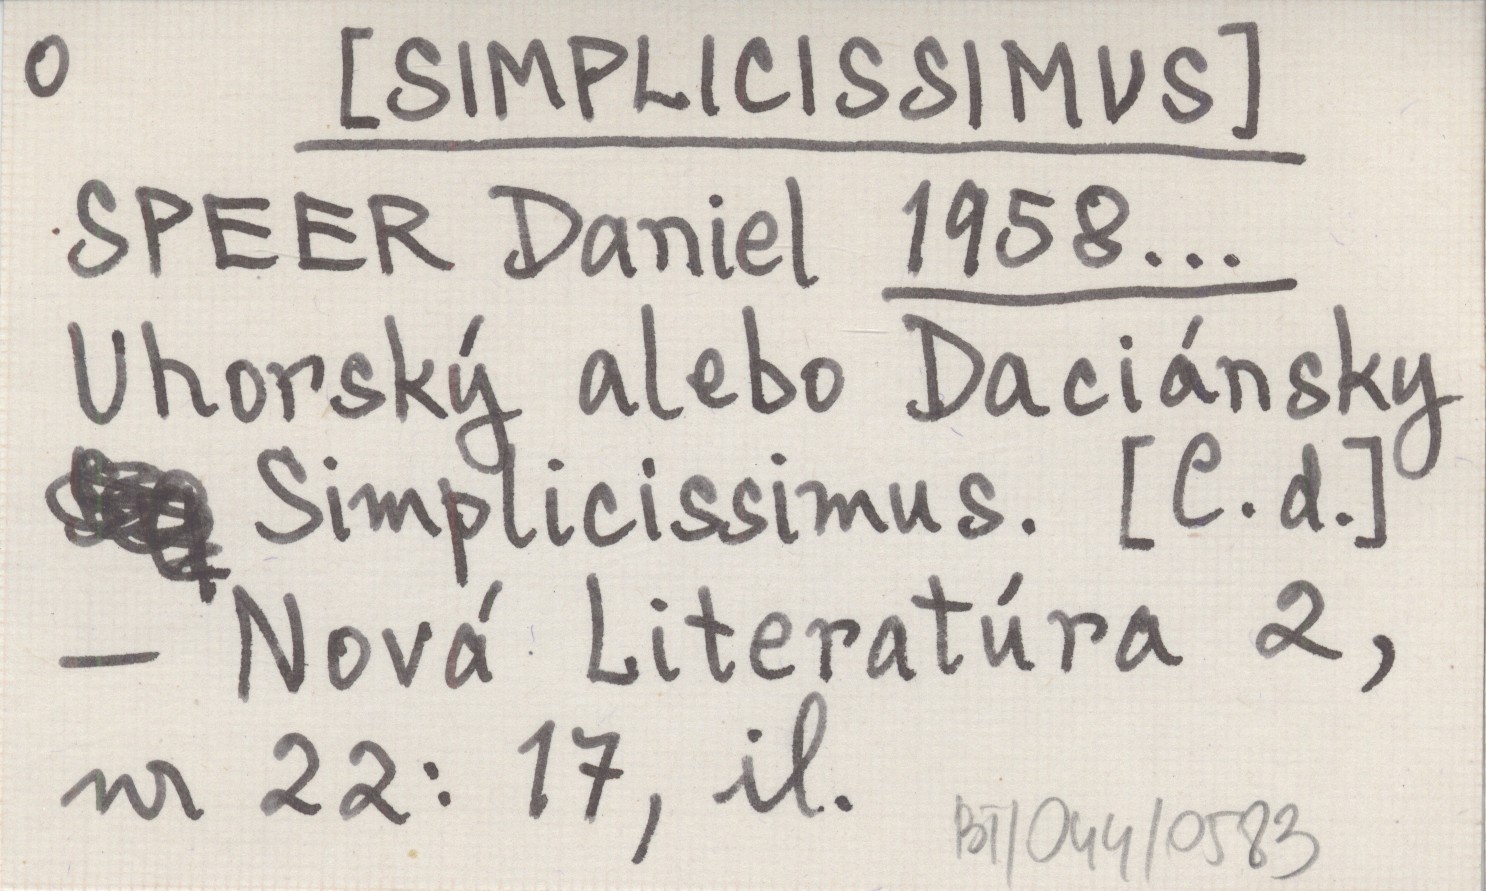 O [SIMPLICISSIMUS]
SPEER Daniel 1958...
Uhorský alebo Daciánsky
Simplicissimus. [C.d.]
— Nová Literatúra 2,
nr 22: 17, il.
BT/044/0583